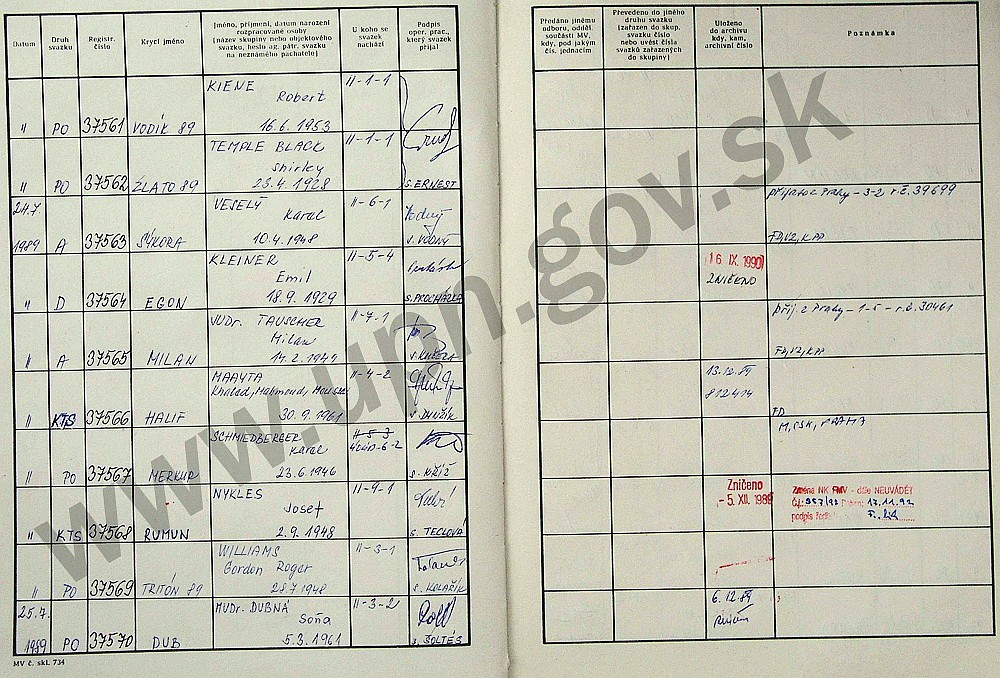 Datum
Druh svazku
Registr. číslo
Krycí jméno
Jméno, příjmení, datum narození
rozpracované osoby
(název skupiny nebo objektového
svazku, heslo ag. pátr. svazku
na neznámého pachatele)
U koho se
svazek
nachází
Podpis
oper. prac.,
který svazek
přijal
Předáno jinému
odboru, odděl.
součásti MV,
kdy, pod jakým
čís. jednacím
Převedeno do jiného
druhu svazku
(zařazen do skup.
uvést čísla
svazků zařazených
do skupiny)
Uloženo
do archivu
kdy, kam,
archivní číslo
Poznámka
KIENE
Robert
16.6.1953
II-1-1
" PO 37561 VODÍK 89
TEMPLE BLACK
Shirley
23.4.1928
II-1-1
" PO 37562 ZLATO 89
S. ERNEST
24.7.
1989 A 37563 SÝKORA
VESELÝ
Karel
10.4.1948
II-6-1
S. VODNÝ
Prahy - 3-2 r.č. 39699
KLEINER
Emil
18.9.1929
II-5-4
" D 37564 EGON
S. PROCHÁZKA
16. IX. 1990
ZNIČENO
JUDr. TAUSCHER
Milan
II-7-1
" A 37565 MILAN
příj. z Prahy - 1-5 - r.č. 30461
MAAYTA
Khaled, Mahmoud, Moussa
30.9.1961
II-4-2
" KTS 37566 HALIF
13.12.89
812414
FD
SCHMIEDBERGER
Karel
23.6.1946
II-5-3
" PO 37567 MERKUR
S. KŘÍŽ
NYKLES
Josef
2.9.1948
II-9-1
" KTS 37568 RUMUN
S. TECLOVÁ
Zničeno
- 5. XII. 1989
Změna NK FMV - dále NEUVÁDĚT
WILLIAMS
Gordon Roger
28.7.1948
II-3-1
" PO 37569 TRITÓN 89
S. KOLAŘÍK
25.7.
1989 PO 37570 DUB
MUDr. DUBNÁ
Soňa
5.3.1961
II-3-2
S. ŠOLTÉS
6.12.89
MV č. skl. 734
www.upn.gov.sk